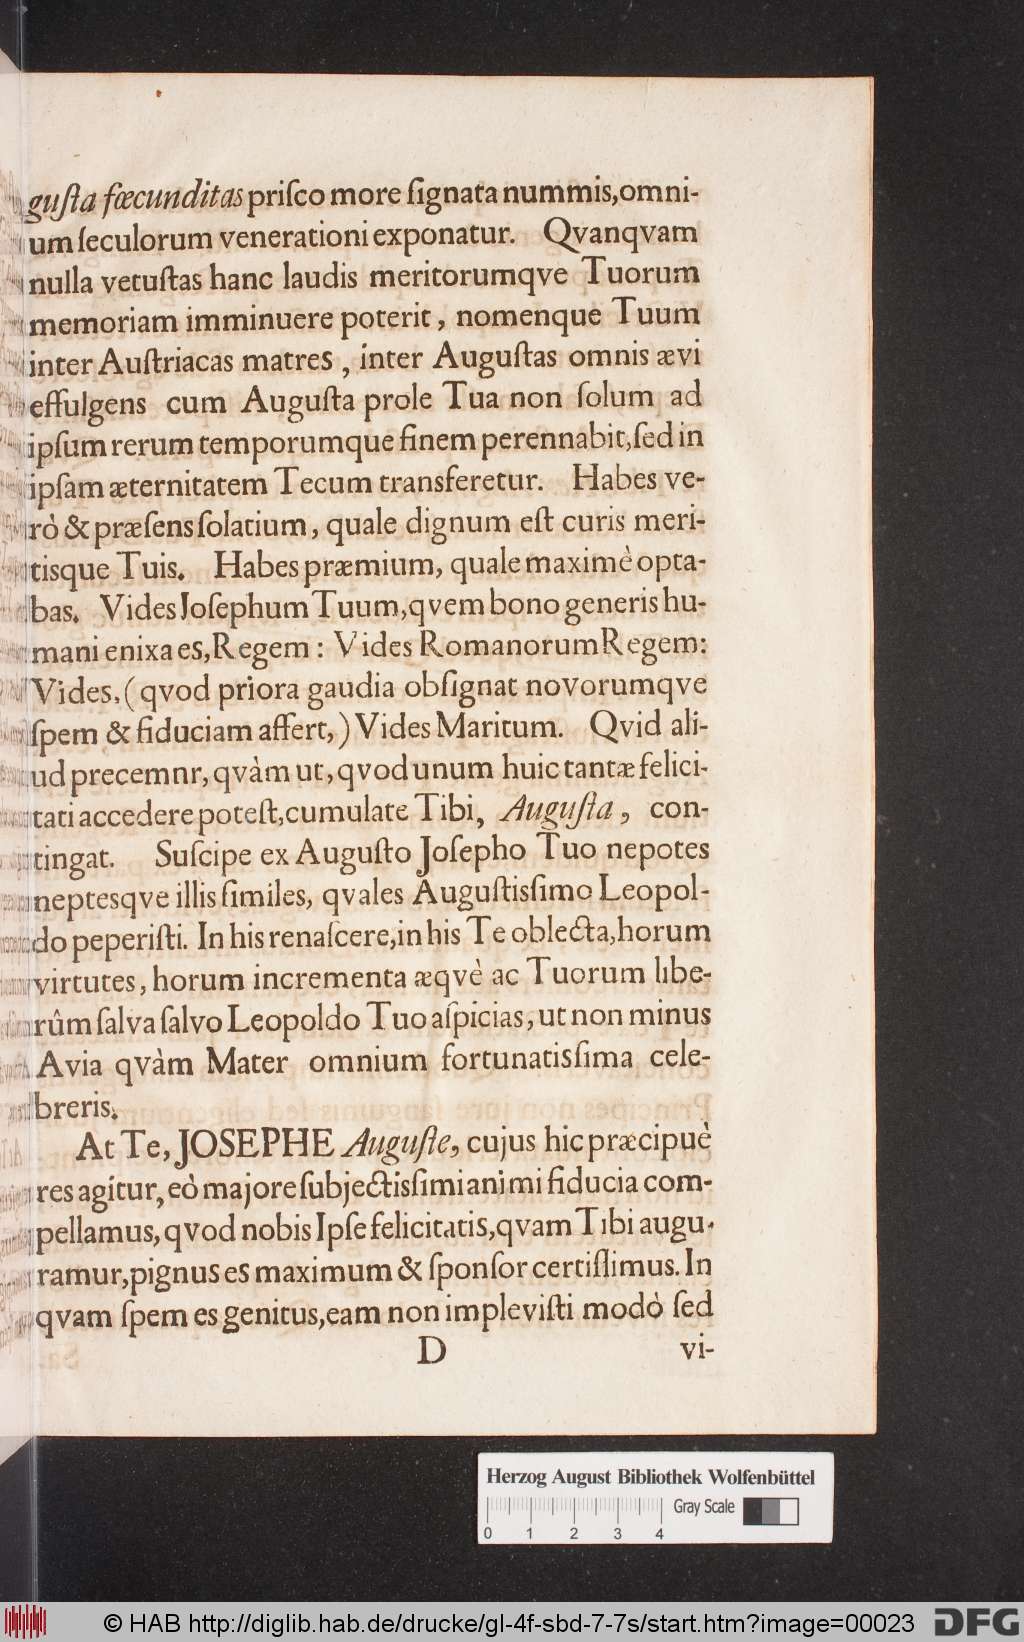 guſta fœcunditas priſco more ſignata nummis, omni-
um ſeculorum venerationi exponatur. Qvanqvam
nulla vetuſtas hanc laudis meritorumqve Tuorum
memoriam imminuere poterit, nomenque Tuum
inter Auſtriacas matres, inter Auguſtas omnis ævi
effulgens cum Auguſta prole Tua non ſolum ad
ipſum rerum temporumque finem perennabit, ſed in
ipſam æternitatem Tecum transferetur. Habes ve-
rò & præſens ſolatium, quale dignum eſt curis meri-
tisque Tuis. Habes præmium, quale maximè opta-
bas. Vides Joſephum Tuum, qvem bono generis hu-
mani enixa es, Regem: Vides Romanorum Regem:
Vides, (qvod priora gaudia obſignat novorumqve
ſpem & fiduciam affert,) Vides Maritum. Qvid ali-
ud precemnr, qvàm ut, qvod unum huic tantæ felici-
tati accedere poteſt, cumulate Tibi, Auguſta, con-
tingat. Suſcipe ex Auguſto Joſepho Tuo nepotes
neptesqve illis ſimiles, qvales Auguſtisſimo Leopol-
do peperiſti. In his renaſcere, in his Te oblecta, horum
virtutes, horum incrementa æqvè ac Tuorum libe-
rûm ſalva ſalvo Leopoldo Tuo aſpicias, ut non minus
Avia qvàm Mater omnium fortunatisſima cele-
breris.
At Te, JOSEPHE Auguſte, cujus hic præcipuè
res agitur, eò majore ſubjectisſimi animi fiducia com-
pellamus, qvod nobis Ipſe felicitatis, qvam Tibi augu-
ramur, pignus es maximum & ſponſor certiſſimus. In
qvam ſpem es genitus, eam non impleviſti modò ſed
D vi-
Herzog August Bibliothek Wolfenbüttel
Gray Scale
0 1 2 3 4
© HAB http://diglib.hab.de/drucke/gl-4f-sbd-7-7s/start.htm?image=00023 DFG